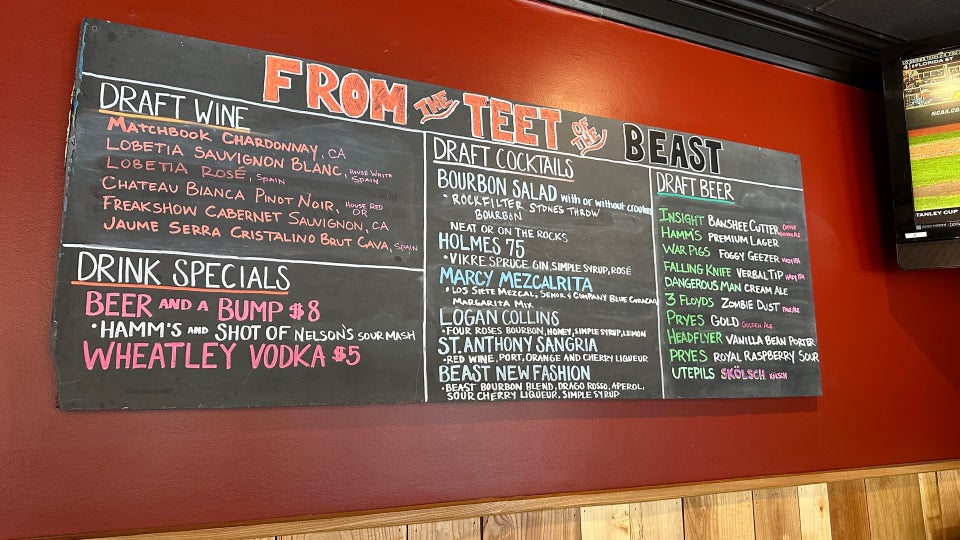 FROM THE TEET OF THE BEAST
DRAFT WINE
MATCHBOOK CHARDONNAY, CA
LOBETIA SAUVIGNON BLANC, HOUSE WHITE SPAIN
LOBETIA ROSÉ, SPAIN
CHATEAU BIANCA PINOT NOIR, HOUSE RED OR
FREAKSHOW CABERNET SAUVIGNON, CA
JAUME SERRA CRISTALINO BRUT CAVA, SPAIN
DRINK SPECIALS
BEER AND A BUMP $8
•HAMM'S AND SHOT OF NELSON'S SOUR MASH
WHEATLEY VODKA $5
DRAFT COCKTAILS
BOURBON SALAD with or without croutons
• ROCKFILTER STONES THROW
BOURBON
NEAT OR ON THE ROCKS
HOLMES 75
•VIKRE SPRUCE GIN, SIMPLE SYRUP, ROSÉ
MARCY MEZCALRITA
• LOS SIETE MEZCAL, SENOR & COMPANY BLUE CURACAO
MARGARITA MIX
LOGAN COLLINS
•FOUR ROSES BOURBON, HONEY, SIMPLE SYRUP, LEMON
ST. ANTHONY SANGRIA
•RED WINE, PORT, ORANGE AND CHERRY LIQUEUR
BEAST NEW FASHION
•BEAST BOURBON BLEND, DRAGO ROSSO, APEROL,
SOUR CHERRY LIQUEUR, SIMPLE SYRUP
DRAFT BEER
INSIGHT BANSHEE CUTTER COFFEE GOLDEN ALE
HAMM'S PREMIUM LAGER
WAR PIGS FOGGY GEEZER HAZY IPA
FALLING KNIFE VERBAL TIP HAZY IPA
DANGEROUS MAN CREAM ALE
3 FLOYDS ZOMBIE DUST PALE ALE
PRYES GOLD GOLDEN ALE
HEADFLYER VANILLA BEAN PORTER
PRYES ROYAL RASPBERRY SOUR
UTEPILS SKÖLSCH KÖLSCH
4 FLORIDA ST
NCAA.CO
TANLEY CUP